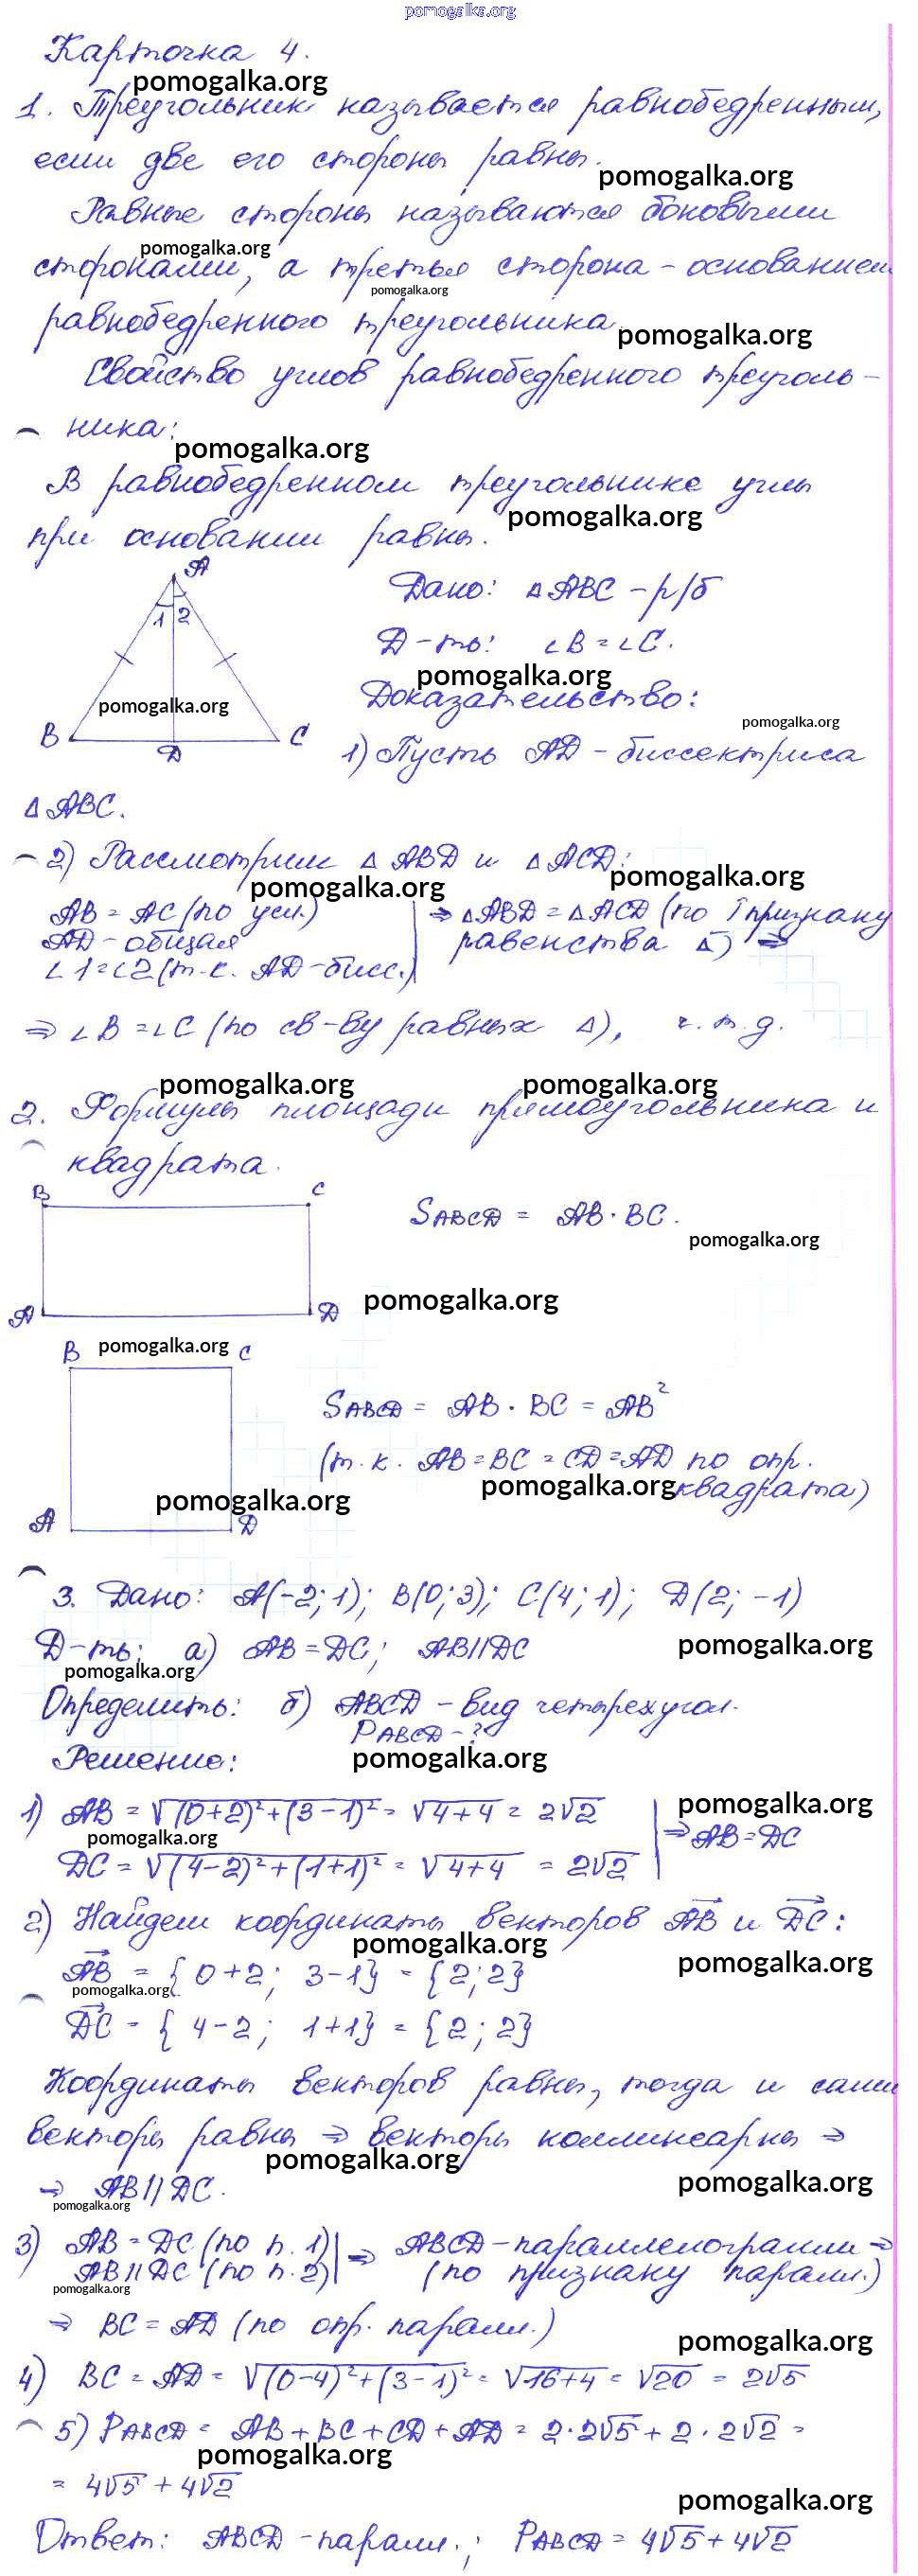 pomogalka.org
Карточка 4.
pomogalka.org
1. Треугольник называется равнобедренным,
если две его стороны равны.
pomogalka.org
Равные стороны называются боковыми
pomogalka.org
сторонами, а третья сторона - основанием
pomogalka.org
равнобедренного треугольника.
pomogalka.org
Свойство углов равнобедренного треуголь-
ника:
pomogalka.org
В равнобедренном треугольнике углы
pomogalka.org
при основании равны.
A
1 2
B
D
C
pomogalka.org
Дано: △ABC - р/б
Д-ть: ∠B = ∠C.
pomogalka.org
Доказательство:
pomogalka.org
1) Пусть AD - биссектриса
△ABC.
2) Рассмотрим △ABD и △ACD:
pomogalka.org pomogalka.org
AB = AC (по усл.)
AD - общая
∠1 = ∠2 (т.к. AD - бисс.)
⇒ △ABD = △ACD (по I признаку
равенства △) ⇒
⇒ ∠B = ∠C (по св-ву равных △), ч.т.д.
pomogalka.org pomogalka.org
2. Формулы площади прямоугольника и
квадрата.
B C
A D
SABCD = AB · BC.
pomogalka.org
pomogalka.org
B pomogalka.org C
A D
pomogalka.org
SABCD = AB · BC = AB²
(т.к. AB = BC = CD = AD по опр.
pomogalka.org квадрата)
3. Дано: A(-2; 1); B(0; 3); C(4; 1); D(2; -1)
Д-ть: а) AB = DC; AB || DC
pomogalka.org
pomogalka.org
Определить: б) ABCD - вид четырехугол.
PABCD - ?
Решение:
pomogalka.org
1) AB = √(0+2)²+(3-1)² = √4+4 = 2√2
pomogalka.org
pomogalka.org
DC = √(4-2)²+(1+1)² = √4+4 = 2√2
⇒ AB = DC
2) Найдем координаты векторов AB и DC:
pomogalka.org
pomogalka.org
AB = {0+2; 3-1} = {2; 2}
pomogalka.org
DC = {4-2; 1+1} = {2; 2}
Координаты векторов равны, тогда и сами
векторы равны ⇒ векторы коллинеарны ⇒
pomogalka.org
pomogalka.org
⇒ AB || DC.
pomogalka.org
3) AB = DC (по п. 1)
AB || DC (по п. 2)
⇒ ABCD - параллелограмм ⇒
(по признаку паралл.)
pomogalka.org
⇒ BC = AD (по опр. паралл.)
pomogalka.org
4) BC = AD = √(0-4)²+(3-1)² = √16+4 = √20 = 2√5
5) PABCD = AB + BC + CD + AD = 2·2√5 + 2·2√2 =
pomogalka.org
= 4√5 + 4√2
pomogalka.org
Ответ: ABCD - паралл.; PABCD = 4√5 + 4√2